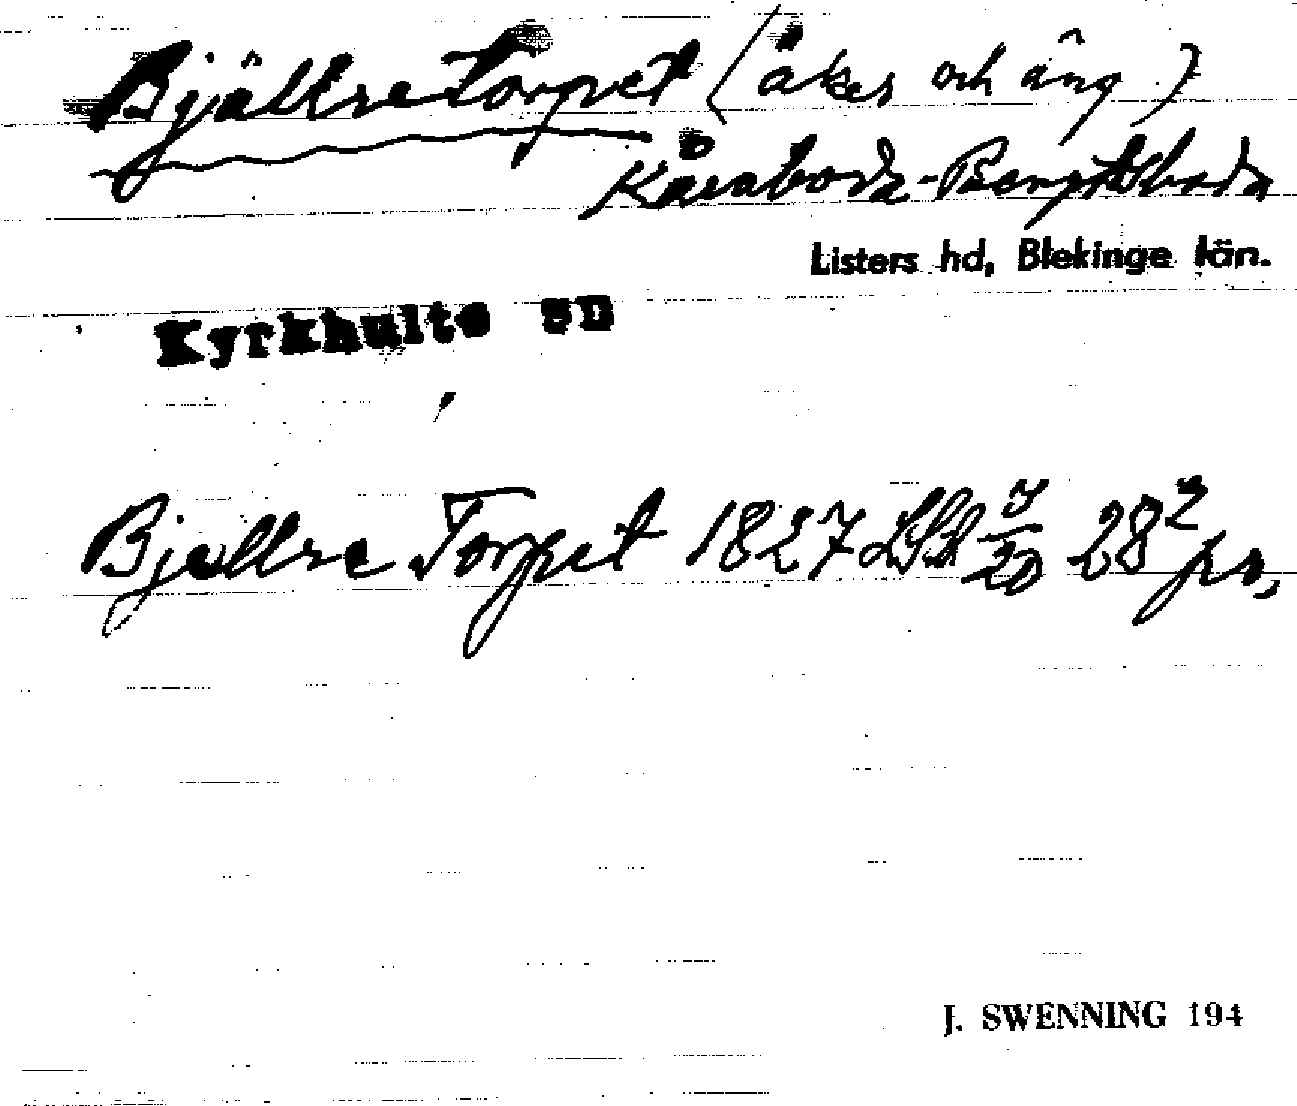 Bjällretorpet (åker och äng)
Kåraboda-Bengtsboda
Listers hd, Blekinge län.
Kyrkhults sn
Bjellre Torpet 1827 LSA 7/20 28² pr,
J. SWENNING 194